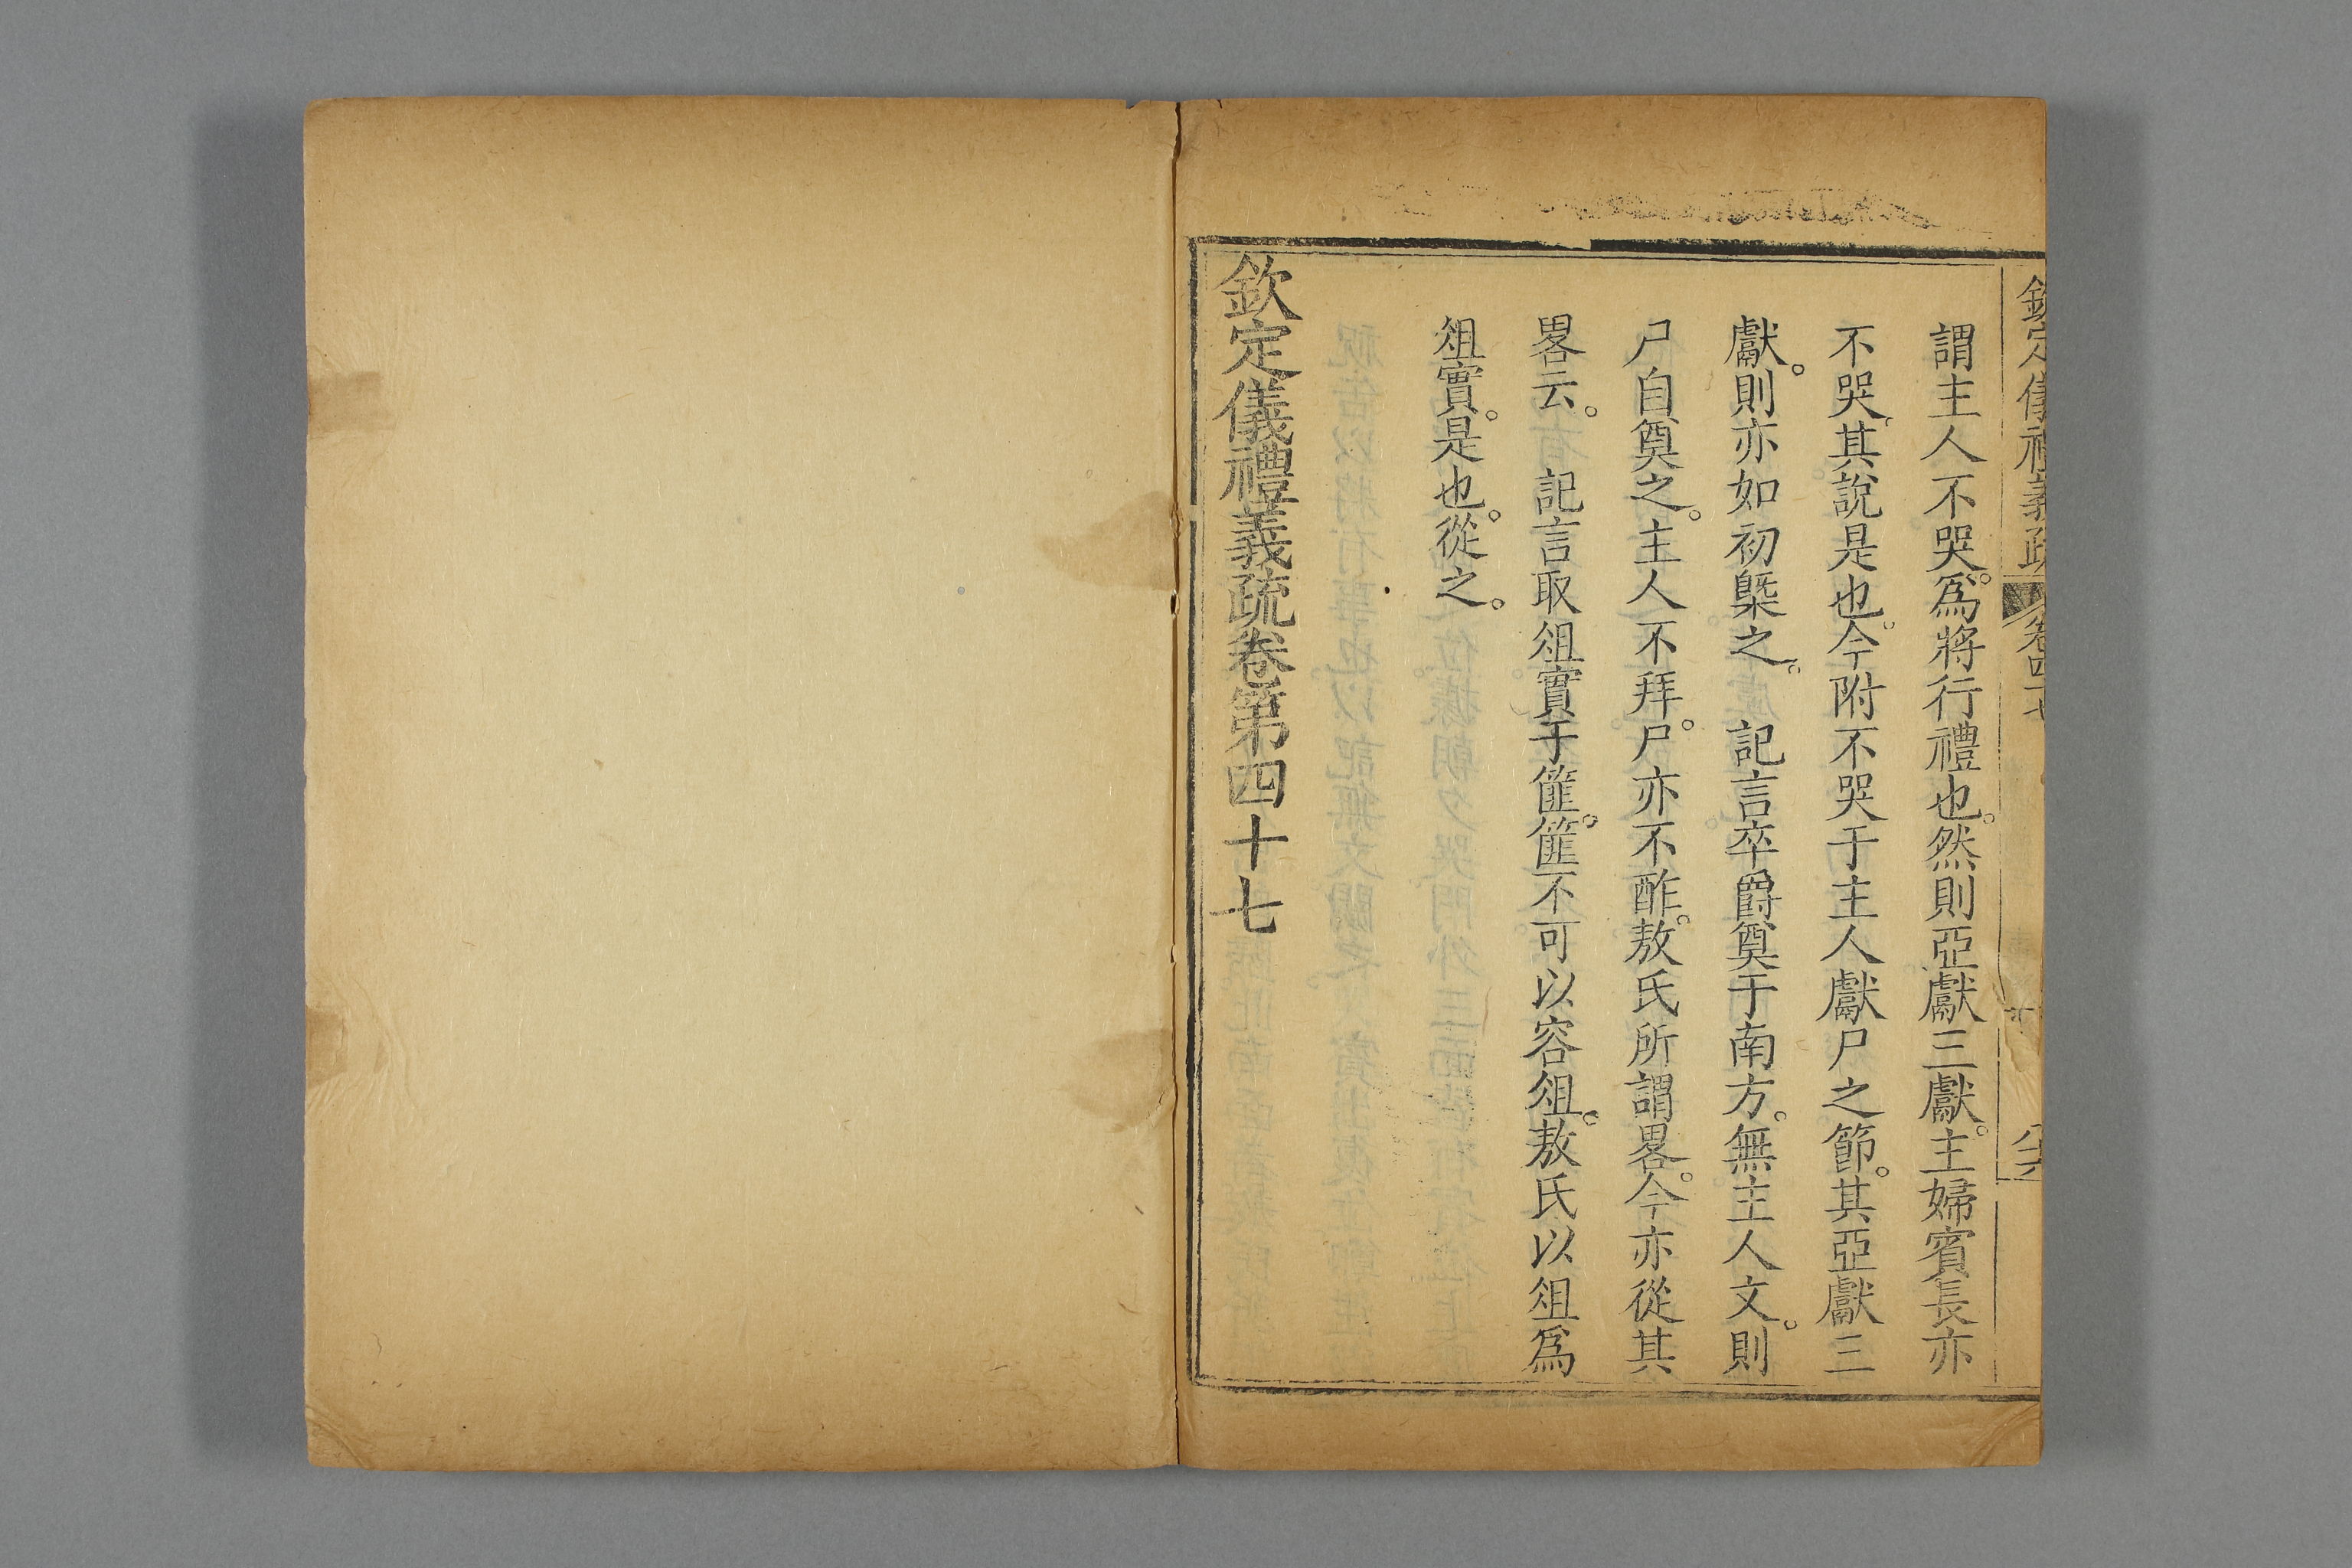 欽定儀禮義疏 卷四十七
謂主人不哭。爲將行禮也。然則亞獻三獻。主婦賓長亦
不哭其說是也。今附不哭于主人獻尸之節。其亞獻三
獻。則亦如初槩之。 記言卒爵奠于南方。無主人文。則
尸自奠之。主人不拜。尸亦不酢。敖氏所謂畧。今亦從其
畧云。 記言取俎實于篚。篚不可以容俎。敖氏以俎爲
俎實。是也。從之。
欽定儀禮義疏卷第四十七